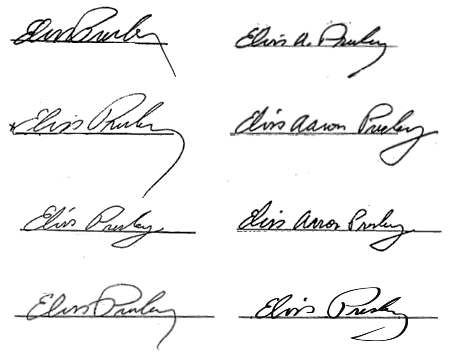 Elvis Presley
Elvis A. Presley
Elvis Presley
Elvis Aaron Presley
Elvis Presley
Elvis Aaron Presley
Elvis Presley
Elvis Presley